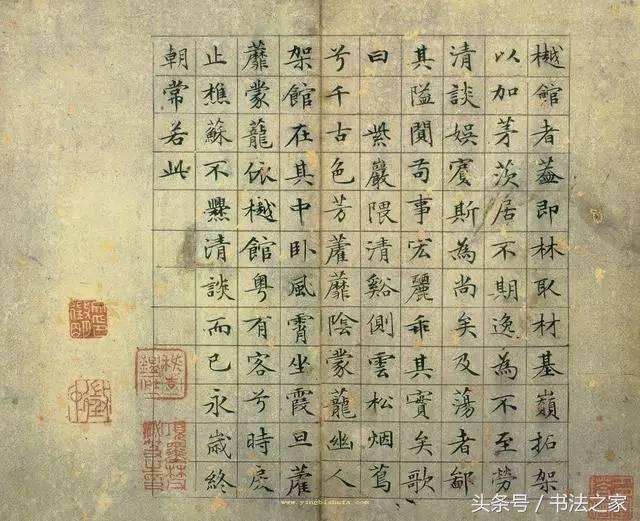 樾館者葢即林取材基巔拓架
以加茅茨居不期逸為不至勞
清談娛賓斯為尚矣及蕩者鄙
其隘闃苟事宏麗乖其實矣歌
曰 紫巖隈清谿側雲松烟蔦
兮千古色芳藿蘼陰蒙蘢幽人
架館在其中卧風霄坐霞旦藿
蘼蒙蘢依樾館粵有客兮時戾
止樵蘇不爨清談而已永歲終
朝常若此
www.yingbishufa.com
头条号 / 书法之家